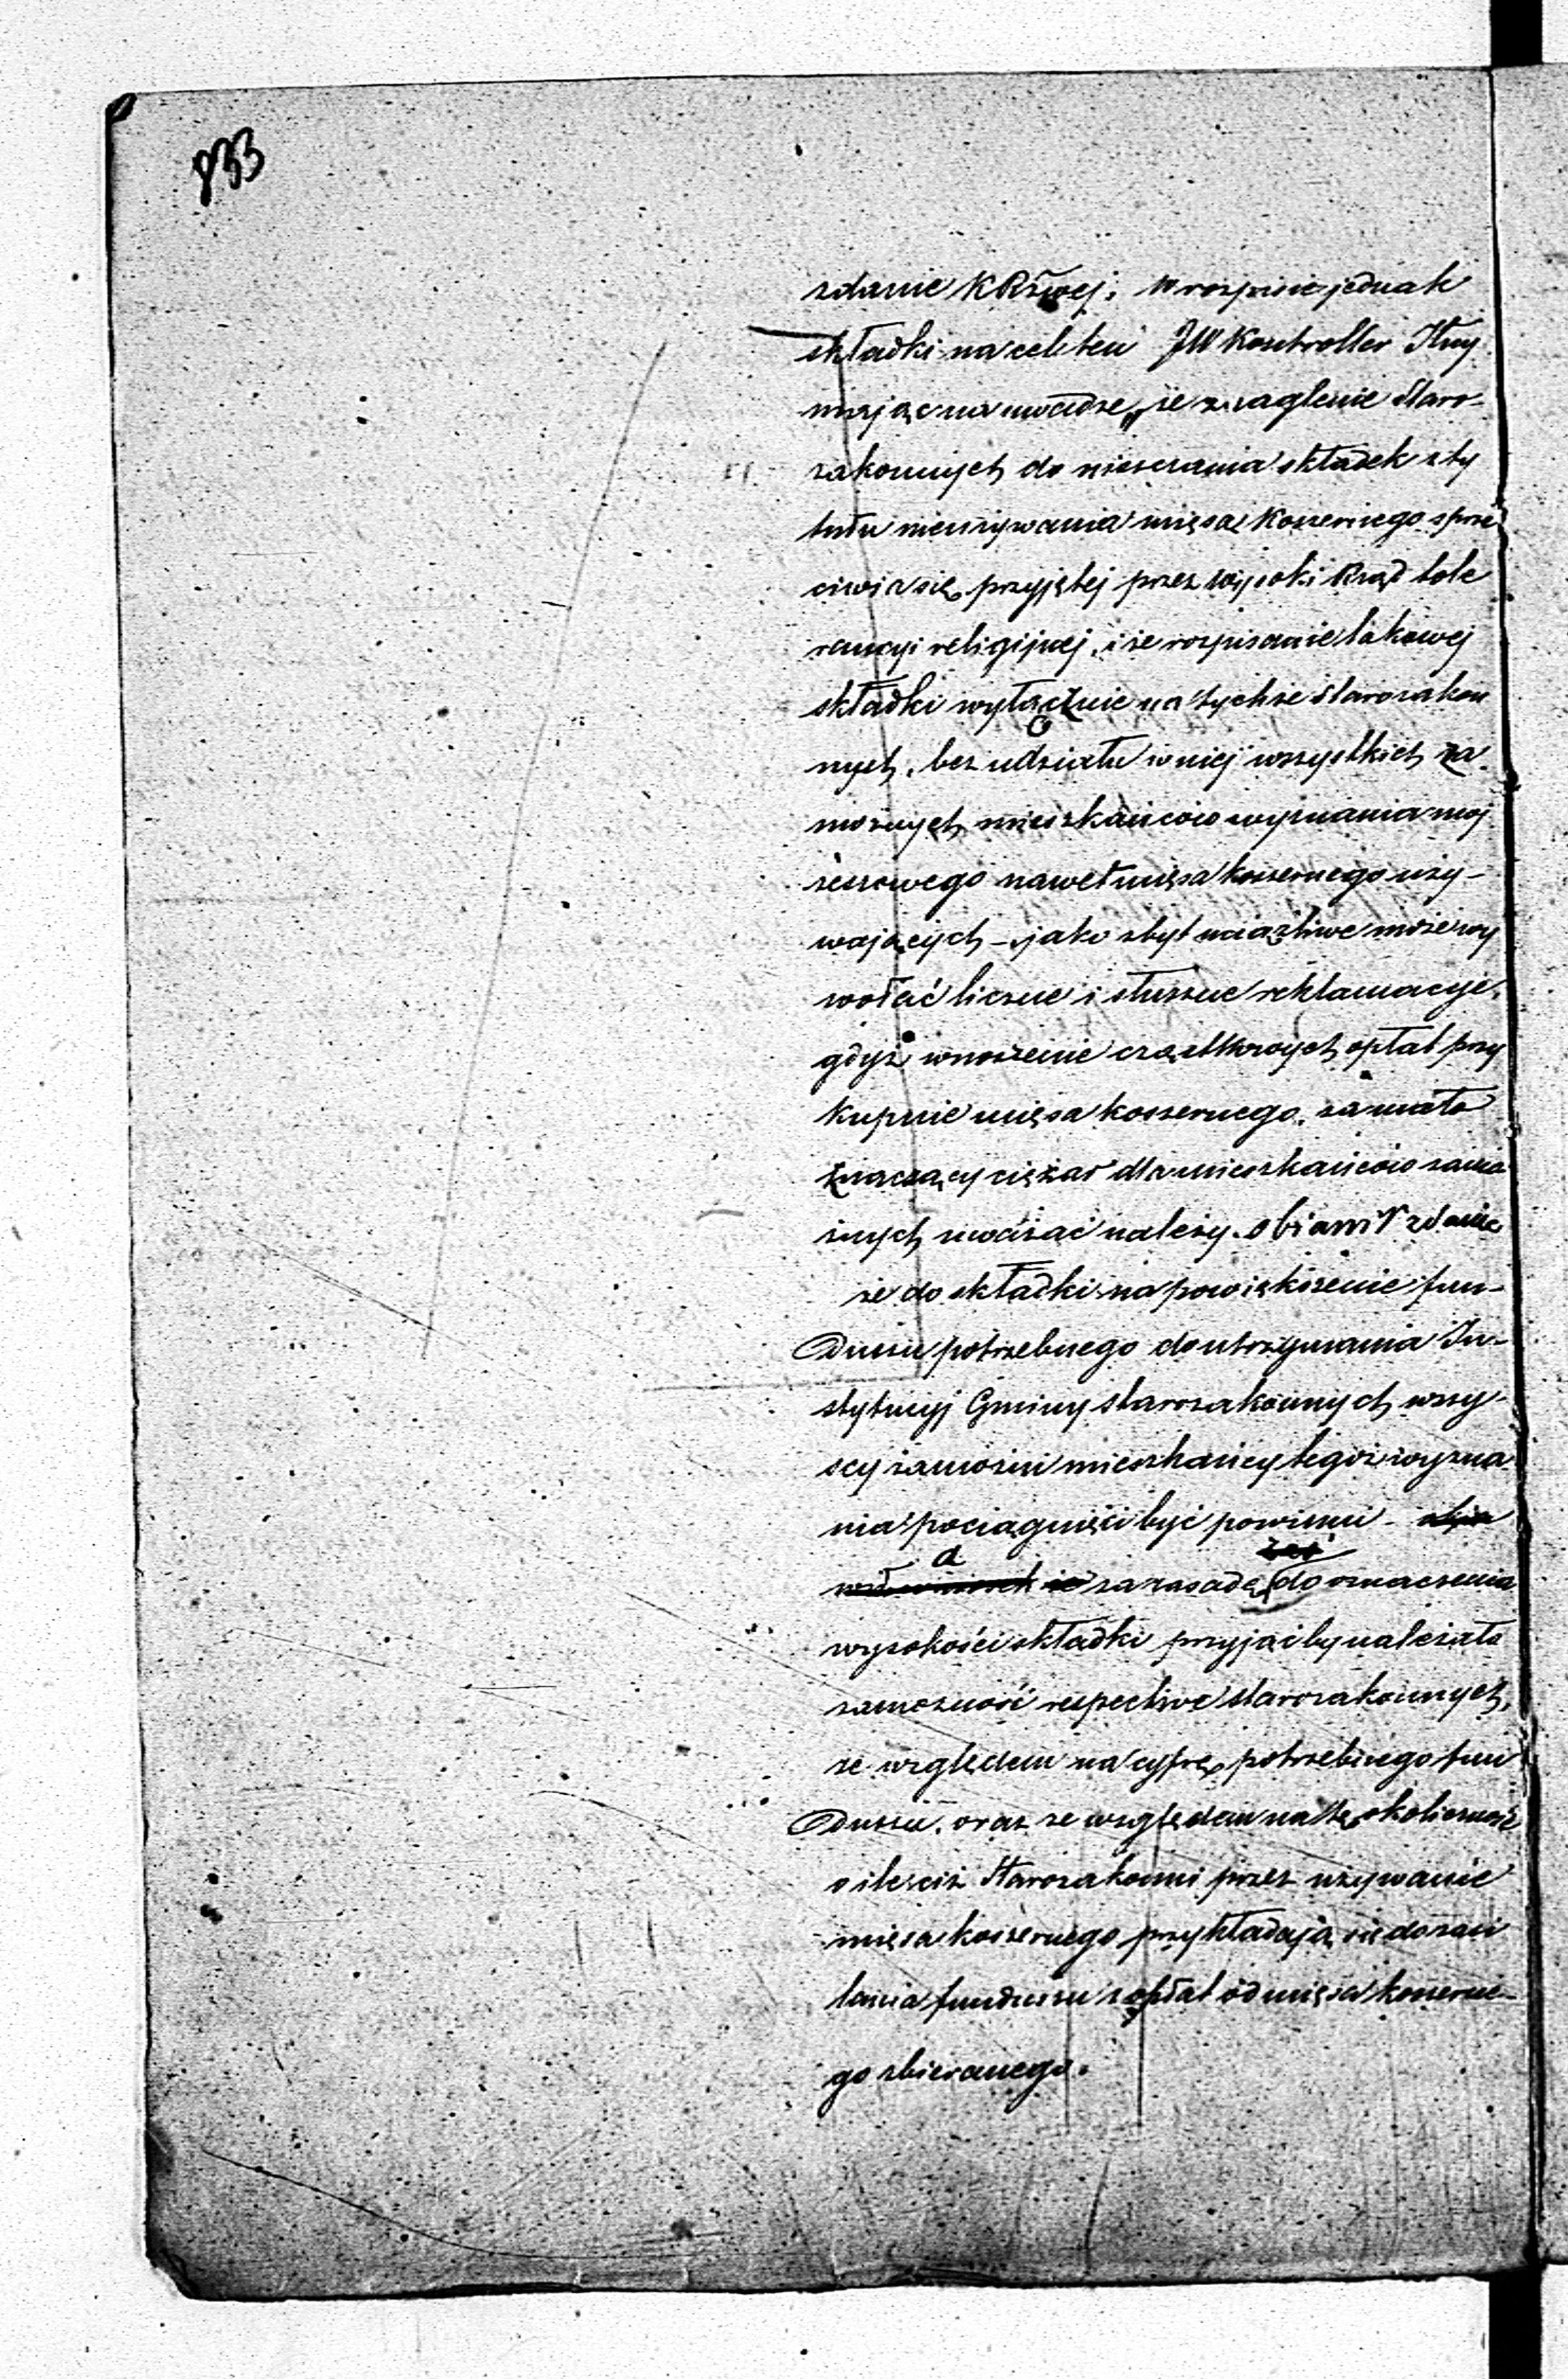 833
zdanie KRzwej; w rozpisie jednak
składki na cel ten JW Kontroller Jlny
mając na uwadze „że znaglenie Staro-
zakonnych do noszenia składek z ty
tułu nieużywania mięsa koszernego sprze
ciwia się przyjętej przez Wysoki Rząd tole
rancyi religijnej, i że rozpisanie takowej
składki wyłącznie na tychże starozakon
nych, bez udziału w niej wszystkich za-
możnych mieszkańców wyznania moj
żeszowego nawet mięsa koszernego uży-
wających – jako zbyt uciążliwe może wy
wołać liczne i słuszne reklamacyje,
gdyż wnoszenie cząstkowych opłat przy
kupnie mięsa koszernego, za mało
znaczący ciężar dla mieszkańców zamo
żnych uważać należy. objawił zdanie
że do składki na powiększenie fun-
duszu potrzebnego do utrzymania In-
stytucyj Gminy starozakonnych wszy-
scy zamożni mieszkańcy tegoż wyzna
nia pociągnięci być powinni –
a
za zasadę do oznaczenia
wysokości składki przyjąć by należało
zamożność respective starozakonnych,
ze względem na cyfrę potrzebnego fun
duszu, oraz ze względem na tę okoliczność
o ile ciż Starozakonni przez używanie
mięsa koszernego przykładają się do zasi
lania funduszu z opłat od mięsa koszerne-
go zbieranego.